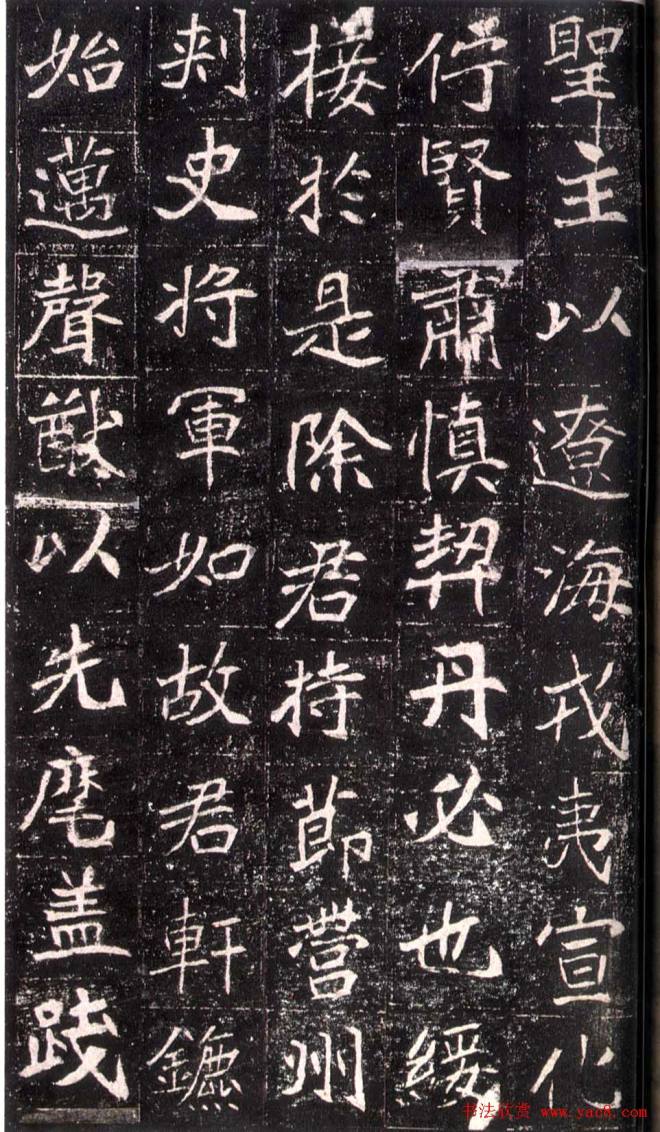 聖主以遼海戎夷宣化
佇賢肅慎契丹必也綏
接於是除君持節營州
刾史将軍如故君軒鑣
始邁聲猷以先麾盖踐
书法欣赏 www.yac8.com